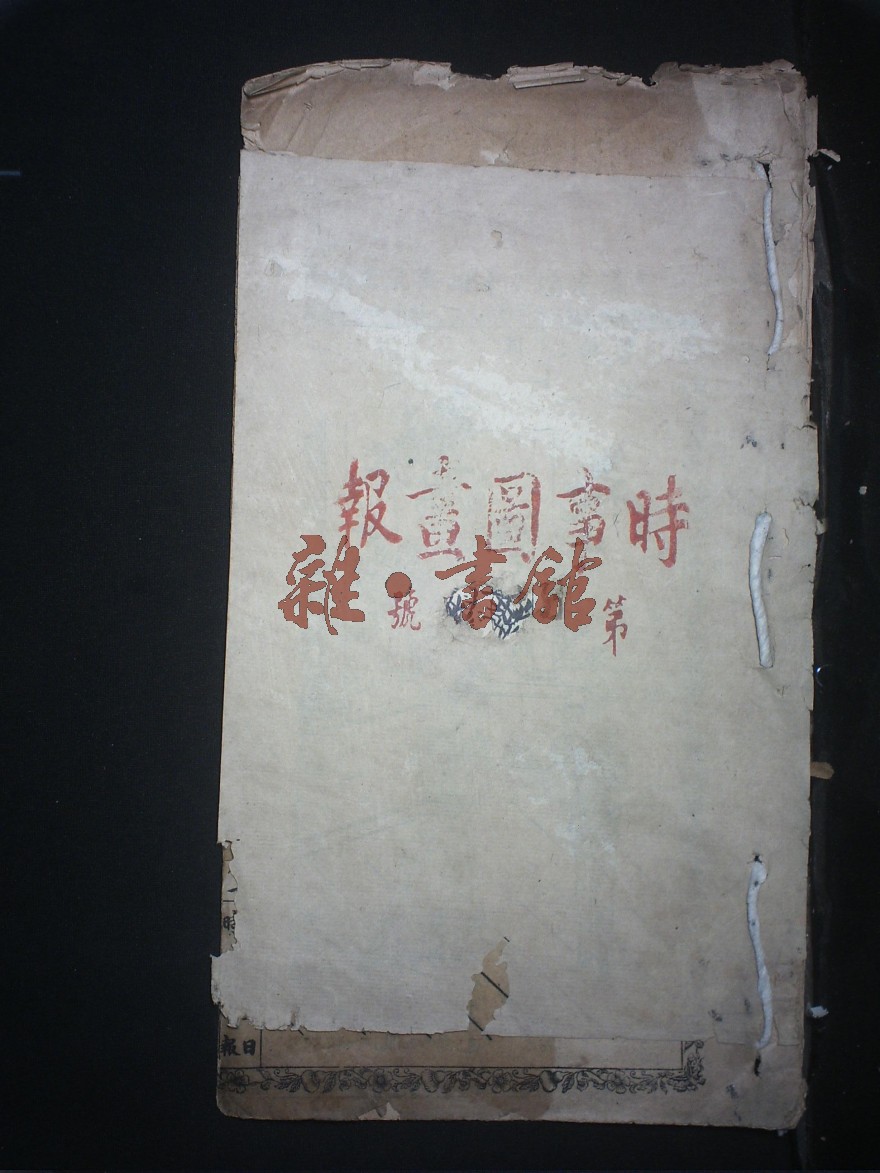 時事圖畫報
第 號
雜·書館
日報